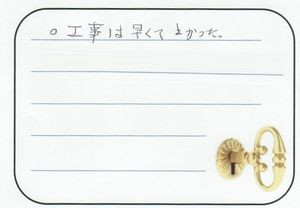 ○ 工事は早くてよかった。